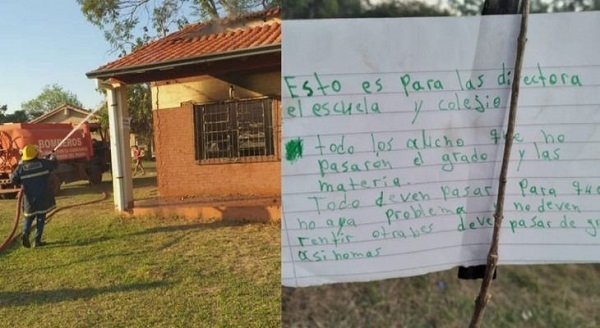 BOMBEROS
Esto es para las directora
el escuela y colejio
todo los alucno que no
pasaron el grado y las
materia.
Todo deven pasar para que
no aya problema no deven
rentir otrabes deven pasar de gra
asinomas